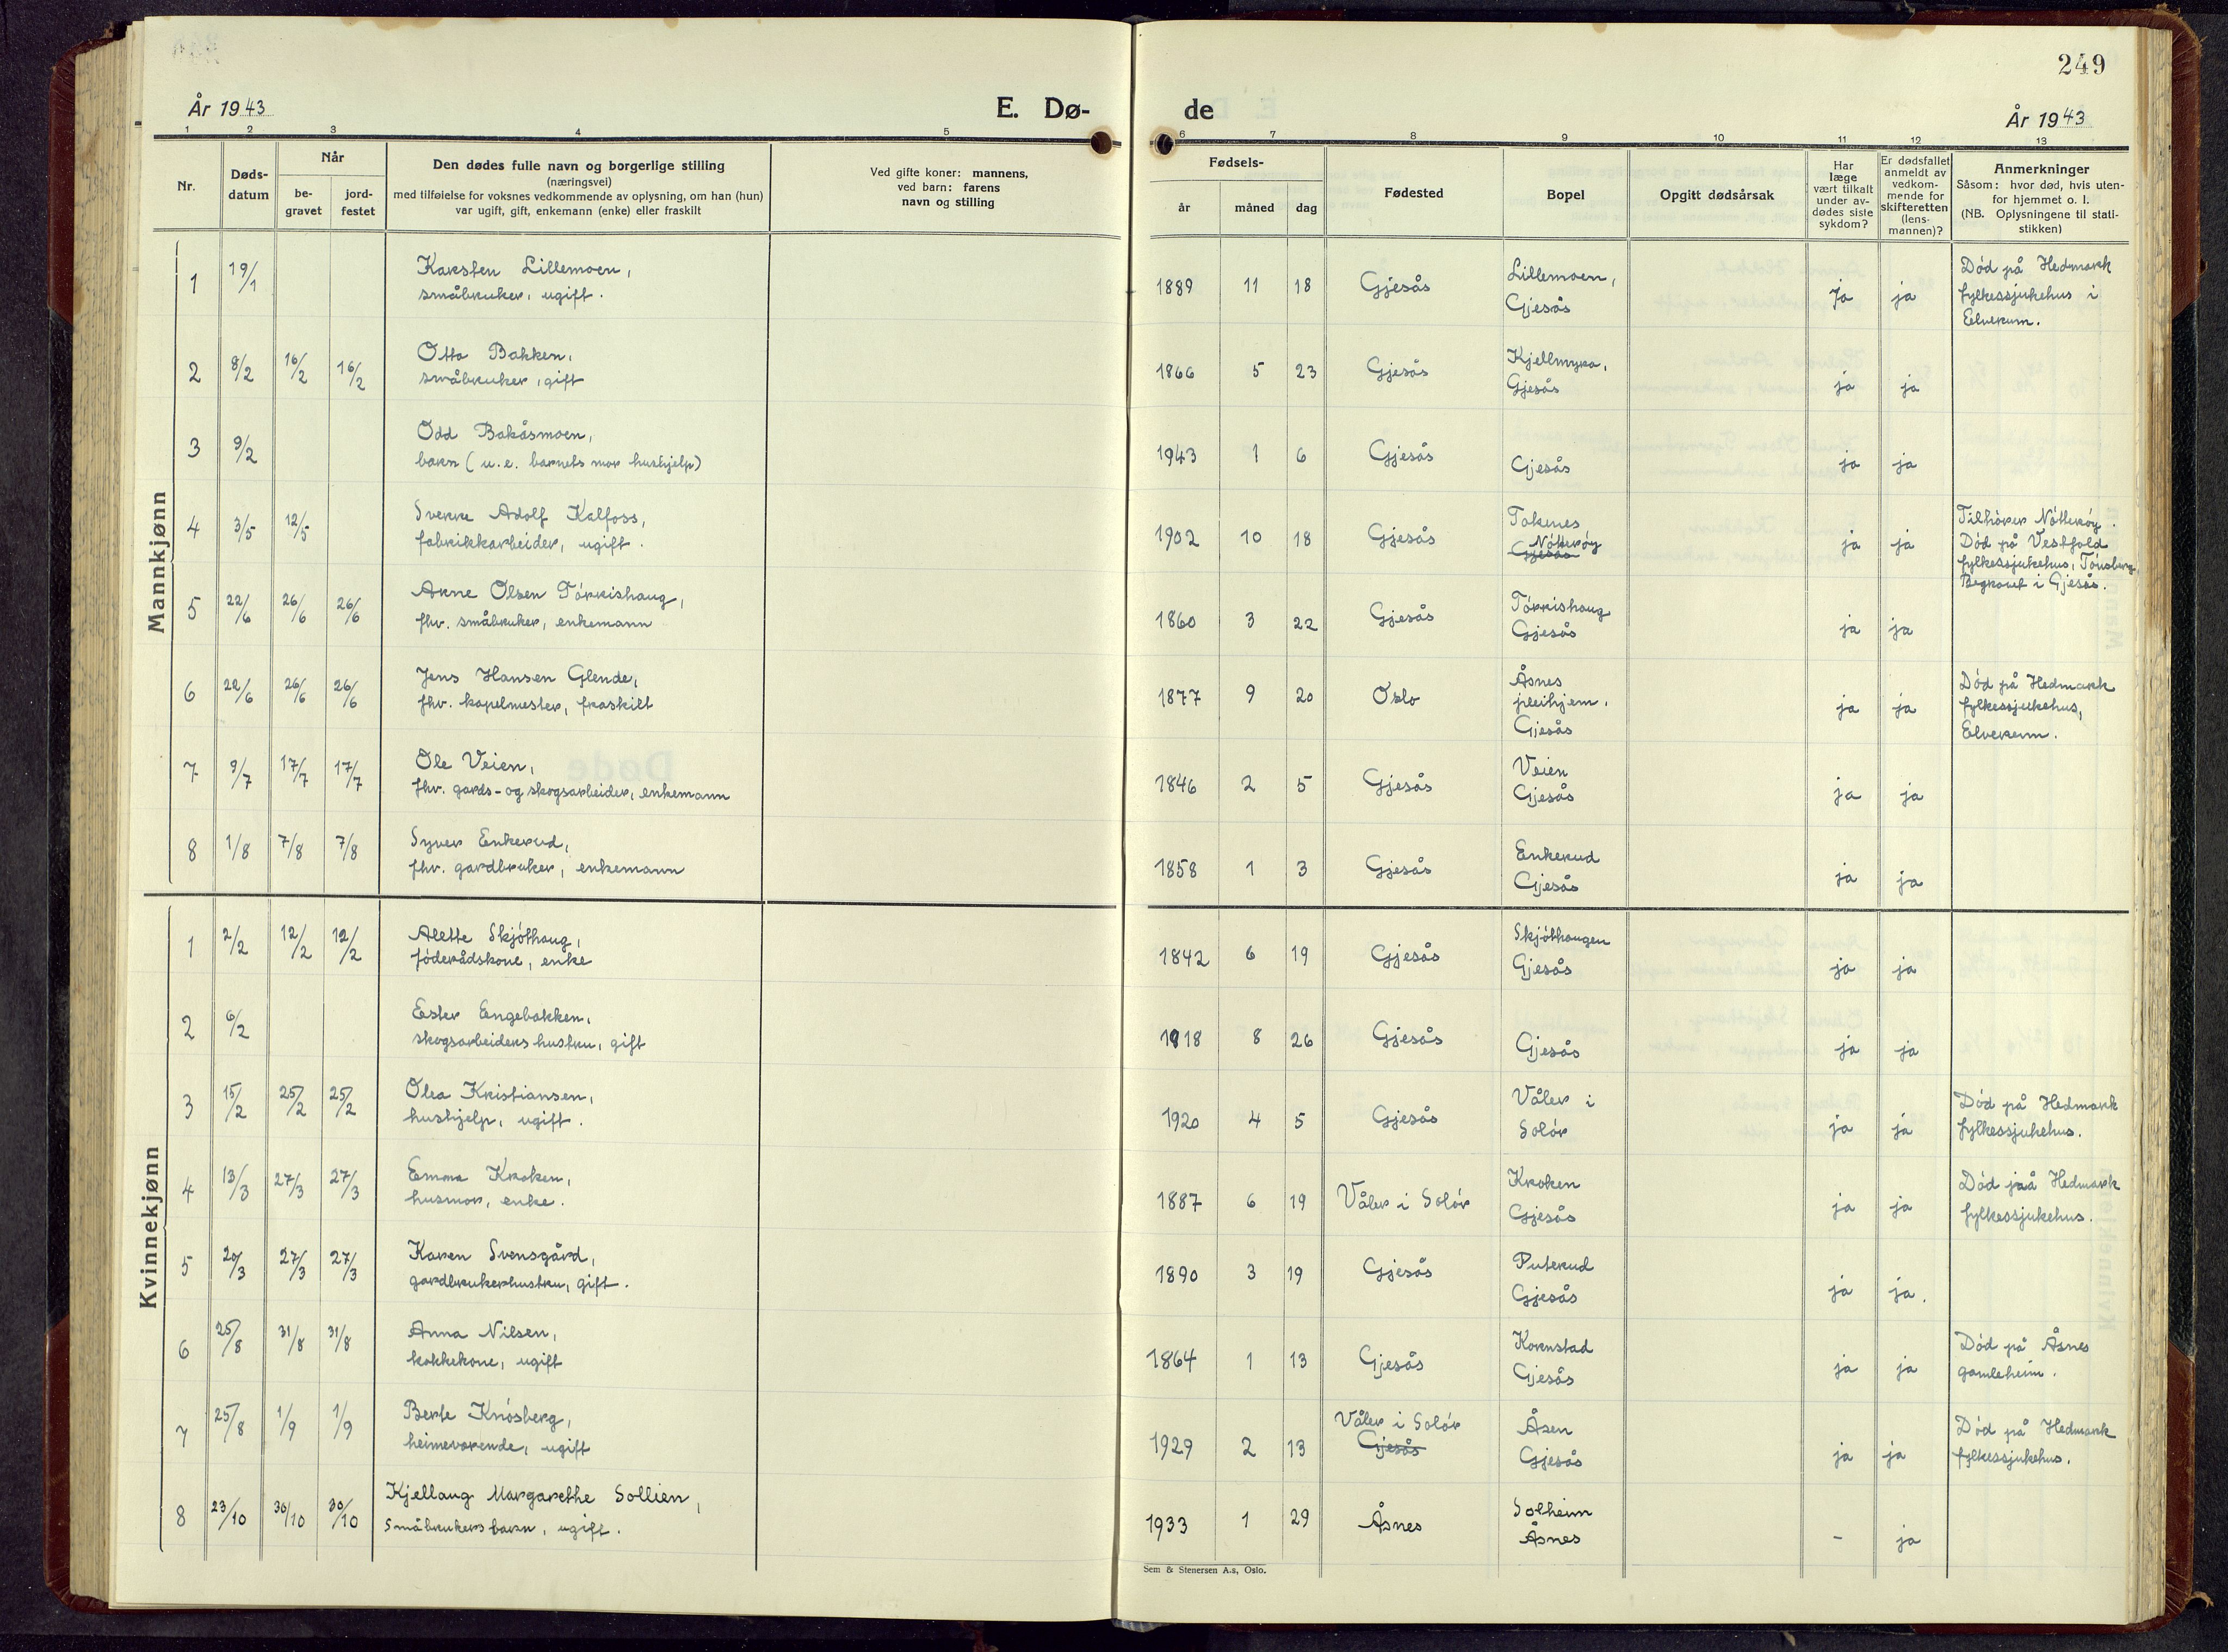 249
År 1943
E. Dø-
de
År 1943
1 2 3 4 5 6 7 8 9 10 11 12 13
Nr.
Døds-
datum
Når
be-
gravet
jord-
festet
Den dødes fulle navn og borgerlige stilling
(næringsvei)
med tilføielse for voksnes vedkommende av oplysning, om han (hun)
var ugift, gift, enkemann (enke) eller fraskilt
Ved gifte koner: mannens,
ved barn: farens
navn og stilling
Fødsels-
år måned dag
Fødested
Bopel
Opgitt dødsårsak
Har
læge
vært tilkalt
under av-
dødes siste
sykdom?
Er dødsfallet
anmeldt av
vedkom-
mende for
skifteretten
(lens-
mannen)?
Anmerkninger
Såsom: hvor død, hvis uten-
for hjemmet o. l.
(NB. Oplysningene til stati-
stikken)
Mannkjønn
1 19/1 Karsten Lillemoen,
småbruker, ugift.
1889 11 18 Gjesås Lillemoen,
Gjesås
ja ja
Død på Hedmark
fylkessjukehus i
Elverum.
2 8/2 16/2 16/2 Otto Bakken,
småbruker, gift
1866 5 23 Gjesås Kjellmyra,
Gjesås
ja ja
3 9/2 Odd Bakåsmoen,
barn (u.e. barnets mor hushjelp)
1943 1 6 Gjesås Gjesås ja ja
4 3/5 12/5 Sverre Adolf Kalfoss,
fabrikkarbeider, ugift.
1902 10 18 Gjesås Toknes,
Nøtterøy
Gjesås
ja ja
Tilhører Nøtterøy.
Død på Vestfold
fylkessjukehus, Tønsberg.
Begravet i Gjesås.
5 22/6 26/6 26/6 Arne Olsen Tørrishaug,
fhv. småbruker, enkemann
1860 3 22 Gjesås Tørrishaug
Gjesås
ja ja
6 22/6 26/6 26/6 Jens Hansen Glende,
fhv. kapelmester, fraskilt
1877 9 20 Oslo Åsnes
pleihjem.
Gjesås
ja ja
Død på Hedmark
fylkessjukehus,
Elverum.
7 9/7 17/7 17/7 Ole Veien,
fhv. gards- og skogsarbeider, enkemann
1846 2 5 Gjesås Veien
Gjesås
ja ja
8 1/8 7/8 7/8 Syver Enkerud,
fhv. gardbruker, enkemann
1858 1 3 Gjesås Enkerud
Gjesås
ja ja
Kvinnekjønn
1 2/2 12/2 12/2 Alette Skjøthaug,
føderådskone, enke
1842 6 19 Gjesås Skjøthaugen
Gjesås
ja ja
2 6/2 Ester Engebakken,
skogsarbeiders hustru, gift
1918 8 26 Gjesås Gjesås ja ja
3 15/2 25/2 25/2 Olea Kristiansen,
hushjelp, ugift.
1920 4 5 Gjesås Våler i
Solør
ja ja
Død på Hedmark
fylkessjukehus.
4 13/3 27/3 27/3 Emma Kroken,
husmor, enke.
1887 6 19 Våler i Solør Kroken
Gjesås
ja ja
Død på Hedmark
fylkessjukehus.
5 20/3 27/3 27/3 Karen Svensgård,
gardbrukerhustru, gift.
1890 3 19 Gjesås Puterud
Gjesås
ja ja.
6 25/8 31/8 31/8 Anna Nilsen,
kokkekone, ugift
1864 1 13 Gjesås Kornstad
Gjesås
ja ja
Død på Åsnes
gamleheim.
7 25/8 1/9 1/9 Berte Knøsberg,
heimeværende, ugift
1929 2 13 Våler i Solør
Gjesås
Åsen
Gjesås
ja ja
Død på Hedmark
fylkessjukehus.
8 23/10 30/10 30/10 Kjellaug Margarethe Sollien,
Småbrukers barn, ugift.
1933 1 29 Åsnes Solheim
Åsnes
- ja
Sem & Stenersen A.s, Oslo.